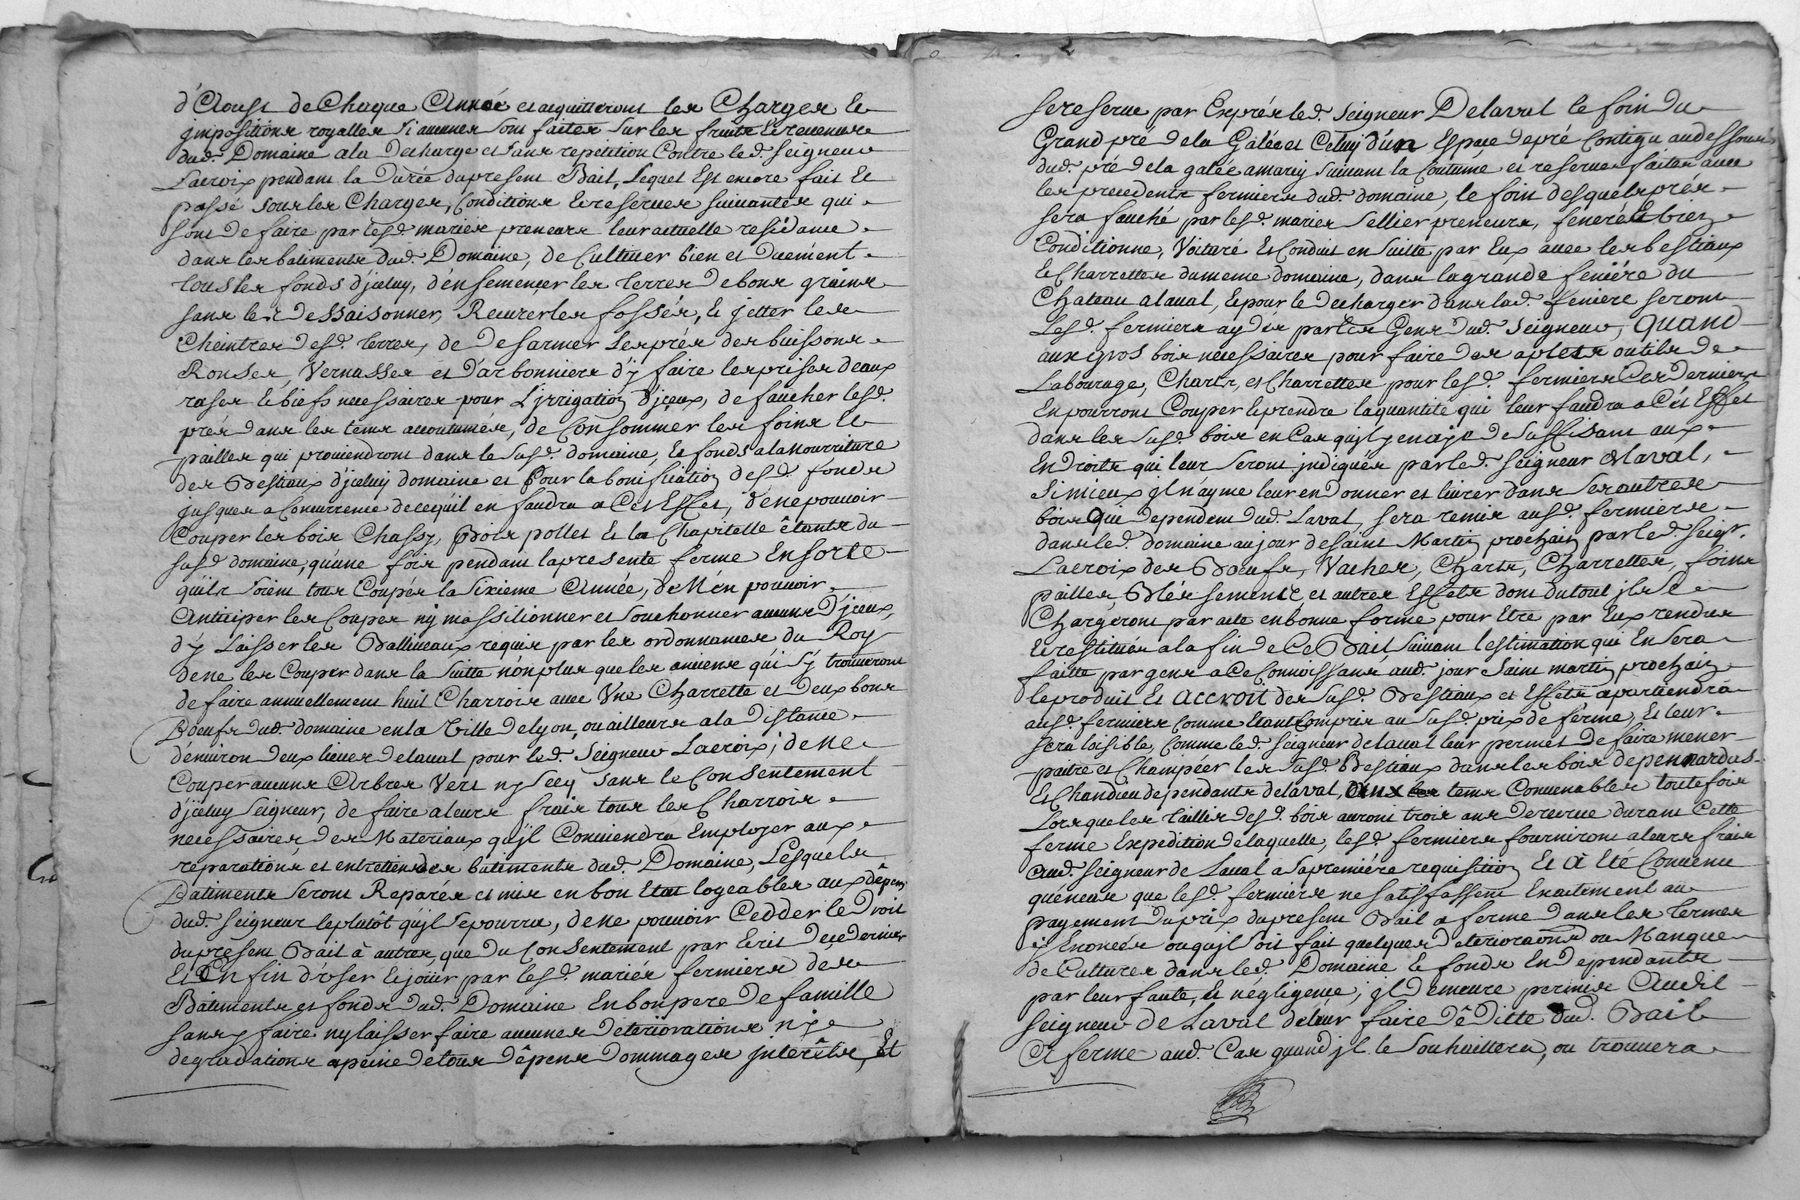 d'Aoust de Chaque Année et acquitteront les Charges &
jmpositions royalles si aucunes sont faites sur les fruits & revenus
dud. Domaine ala decharge et sans repetition Contre led. Seigneur
Lacroix pendant la Durée du present Bail, Lequel Est encore fait Et
passé sous les Charges, Conditions & reserves suivantes qui
sont De faire par lesd. mariés preneurs leur actuelle residance
dans les batiments dud. Domaine, de Cultiver bien et Duement
tous les fonds d'jceluy, d'ensemençer les terres De bons grains
sans les Dessaisonner, Recurer les fossés, & jetter les
Cheintres desd. terres, de Desarmer Les prés des buissons
Ronses, Vernasses et D'arbonnieres d'y faire les prises deaux
rases & biefs necessaires pour L'jrrigation d'jceux, de faucher lesd.
prés dans les tems accoutumés, de Consommer les foins &
pailles qui proviendront dans le susd. domaine, Et fonds a la Nourriture
des Bestiaux d'jceluy domaine et Pour la bonification desd. fonds
jusques a Concurrence de ce qu'il en faudra a Cet Effet, d'e ne pouvoir
Couper les bois Chassy, Bois pollet Et la Chapitelle êtants du
susd domaine, qu'une fois pendant la presente ferme En sorte
qu'ils soient tous Coupés la Sixieme Année, de N'en pouvoir
Anticiper les Coupes ny massilionner et souchonner aucuns D'jceux,
d'y Laisser les Balliveaux requis par les ordonnances du Roy
de ne les Couper dans la suitte non plus que les anciens qui s'y trouveront
de faire annuellement huit Charrois avec Une Charrette et Deux bons
Boeufs dud. domaine en la Ville de Lyon, ou ailleurs a la Distance
d'environ deux lieues delaval pour led. Seigneur Lacroix; de ne
Couper aucuns Arbres Vers ny Secq sans le Consentement
d'jceluy Seigneur, de faire a leurs frais tous les Charrois
necessaires des Materiaux qu'jl Conviendra Employer aux
reparations et entretien des batiments dud. Domaine, Lesquels
Batiments seront Reparés et mis en bon Etat logeables aux dêpens
dud. Seigneur le plutôt qu'jl se pourra, de ne pouvoir Cedder le Droit
du present Bail à autres que du Consentement par Ecrit de ce dernier
Et Enfin d'user & jouir par lesd. mariés fermiers des
Batiments et fonds dud. Domaine En bon pere De famille
sans y faire ny laisser faire aucunes deteriorations ny
degradations a peine de tous dêpens Dommages jnterêts, Et
se reserve par Exprés led. Seigneur Delaval le foin du
Grand pré de la Galée et Celuy d'un Espace de pré Contigu au dessous
dud. pré de la galée amarin suivant la Coutume et reserves faites avec
les precedents fermiers dud. domaine, le foin desquels prés
sera fauché par lesd. mariés Sellier preneurs, feneré & bien
Conditionné, Voituré & Conduit en suitte par Eux avec les bestiaux
& Charrettes du meme domaine, dans la grande feniére du
Chateau a laval, & pour le decharger dans lad. feniere seront
Lesd. fermiers aydés par les Gens dud. Seigneur, Quand
aux gros bois necessaires pour faire des aplets outils de
Labourage, Chars, et Charrettes pour lesd. fermiers Ces Derniers
En pourront Couper & prendre la quantité qui leur faudra a Cet Effet
dans les susd. bois en Cas qu'jl y en aye de suffisant aux
Endroits qui leur seront jndiqués par led. Seigneur Delaval,
si mieux jl n'ayme leur en Donner et livrer dans ses autres
bois Qui Dependent dud. Laval, sera remis ausd. fermiers
dans led. domaine au jour de saint Martin prochain par led. Seigr.
Lacroix des Boeufs, Vaches, Chars, Charrettes, foins
pailles Blés semence et autres Effets dont du tout jls se
Chargeront par acte en bonne forme pour Etre par Eux rendus
& restitués a la fin de Ce Bail suivant l'estimation qui En sera
faitte par gens a Ce Connoissans aud. jour saint martin prochain
le produit Et Accroit des susd. Bestiaux et Effets apartiendra
ausd. fermiers Comme Etant Compris au susd. prix de ferme, Et leur
sera loisible, Comme led. Seigneur delaval leur permet De faire mener
paitre et Champéer les susd. Bestiaux dans les bois de pennardas
Et Chandieu dependants delaval, aux tems Convenables toutefois
Lorsque les taillis desd. bois auront trois ans de revenue durant Cette
ferme Expedition de laquelle, lesd. fermiers fourniront a leurs frais
aud. Seigneur de Laval a sa premiére requisition Et a Eté Convenu
qu'en cas que lesd. fermiers ne satisfassent Exactement au
payement du prix du present Bail a ferme Dans les termes
y Enoncés ou qu'jl soit fait quelques deteriorations ou Manque
de Cultures dans led. Domaine & fonds En Dependants
par leur faute, & négligence, jl Demeure permis Audit
Seigneur de Laval de leur faire dê Ditte dud. Bail
A ferme aud. Cas quand jl le souhaittera, ou trouvera